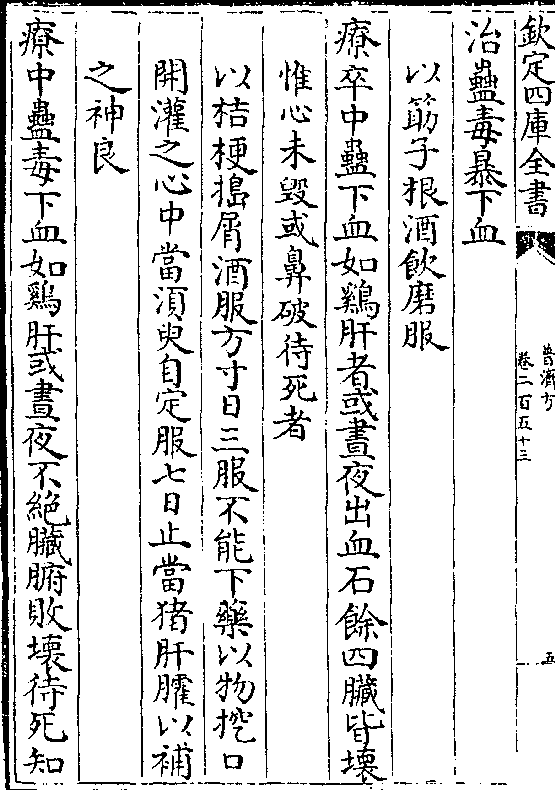 欽定四庫全書
普濟方
卷二百五十三
五
治蠱毒暴下血
以筯子根酒飲磨服
療卒中蠱下血如鷄肝者或晝夜出血石餘四臟皆壞
惟心未毀或鼻破待死者
以桔梗搗屑酒服方寸日三服不能下藥以物挖口
開灌之心中當須臾自定服七日止當猪肝臛以補
之神良
療中蠱毒下血如鷄肝或晝夜不絶臟腑敗壞待死知